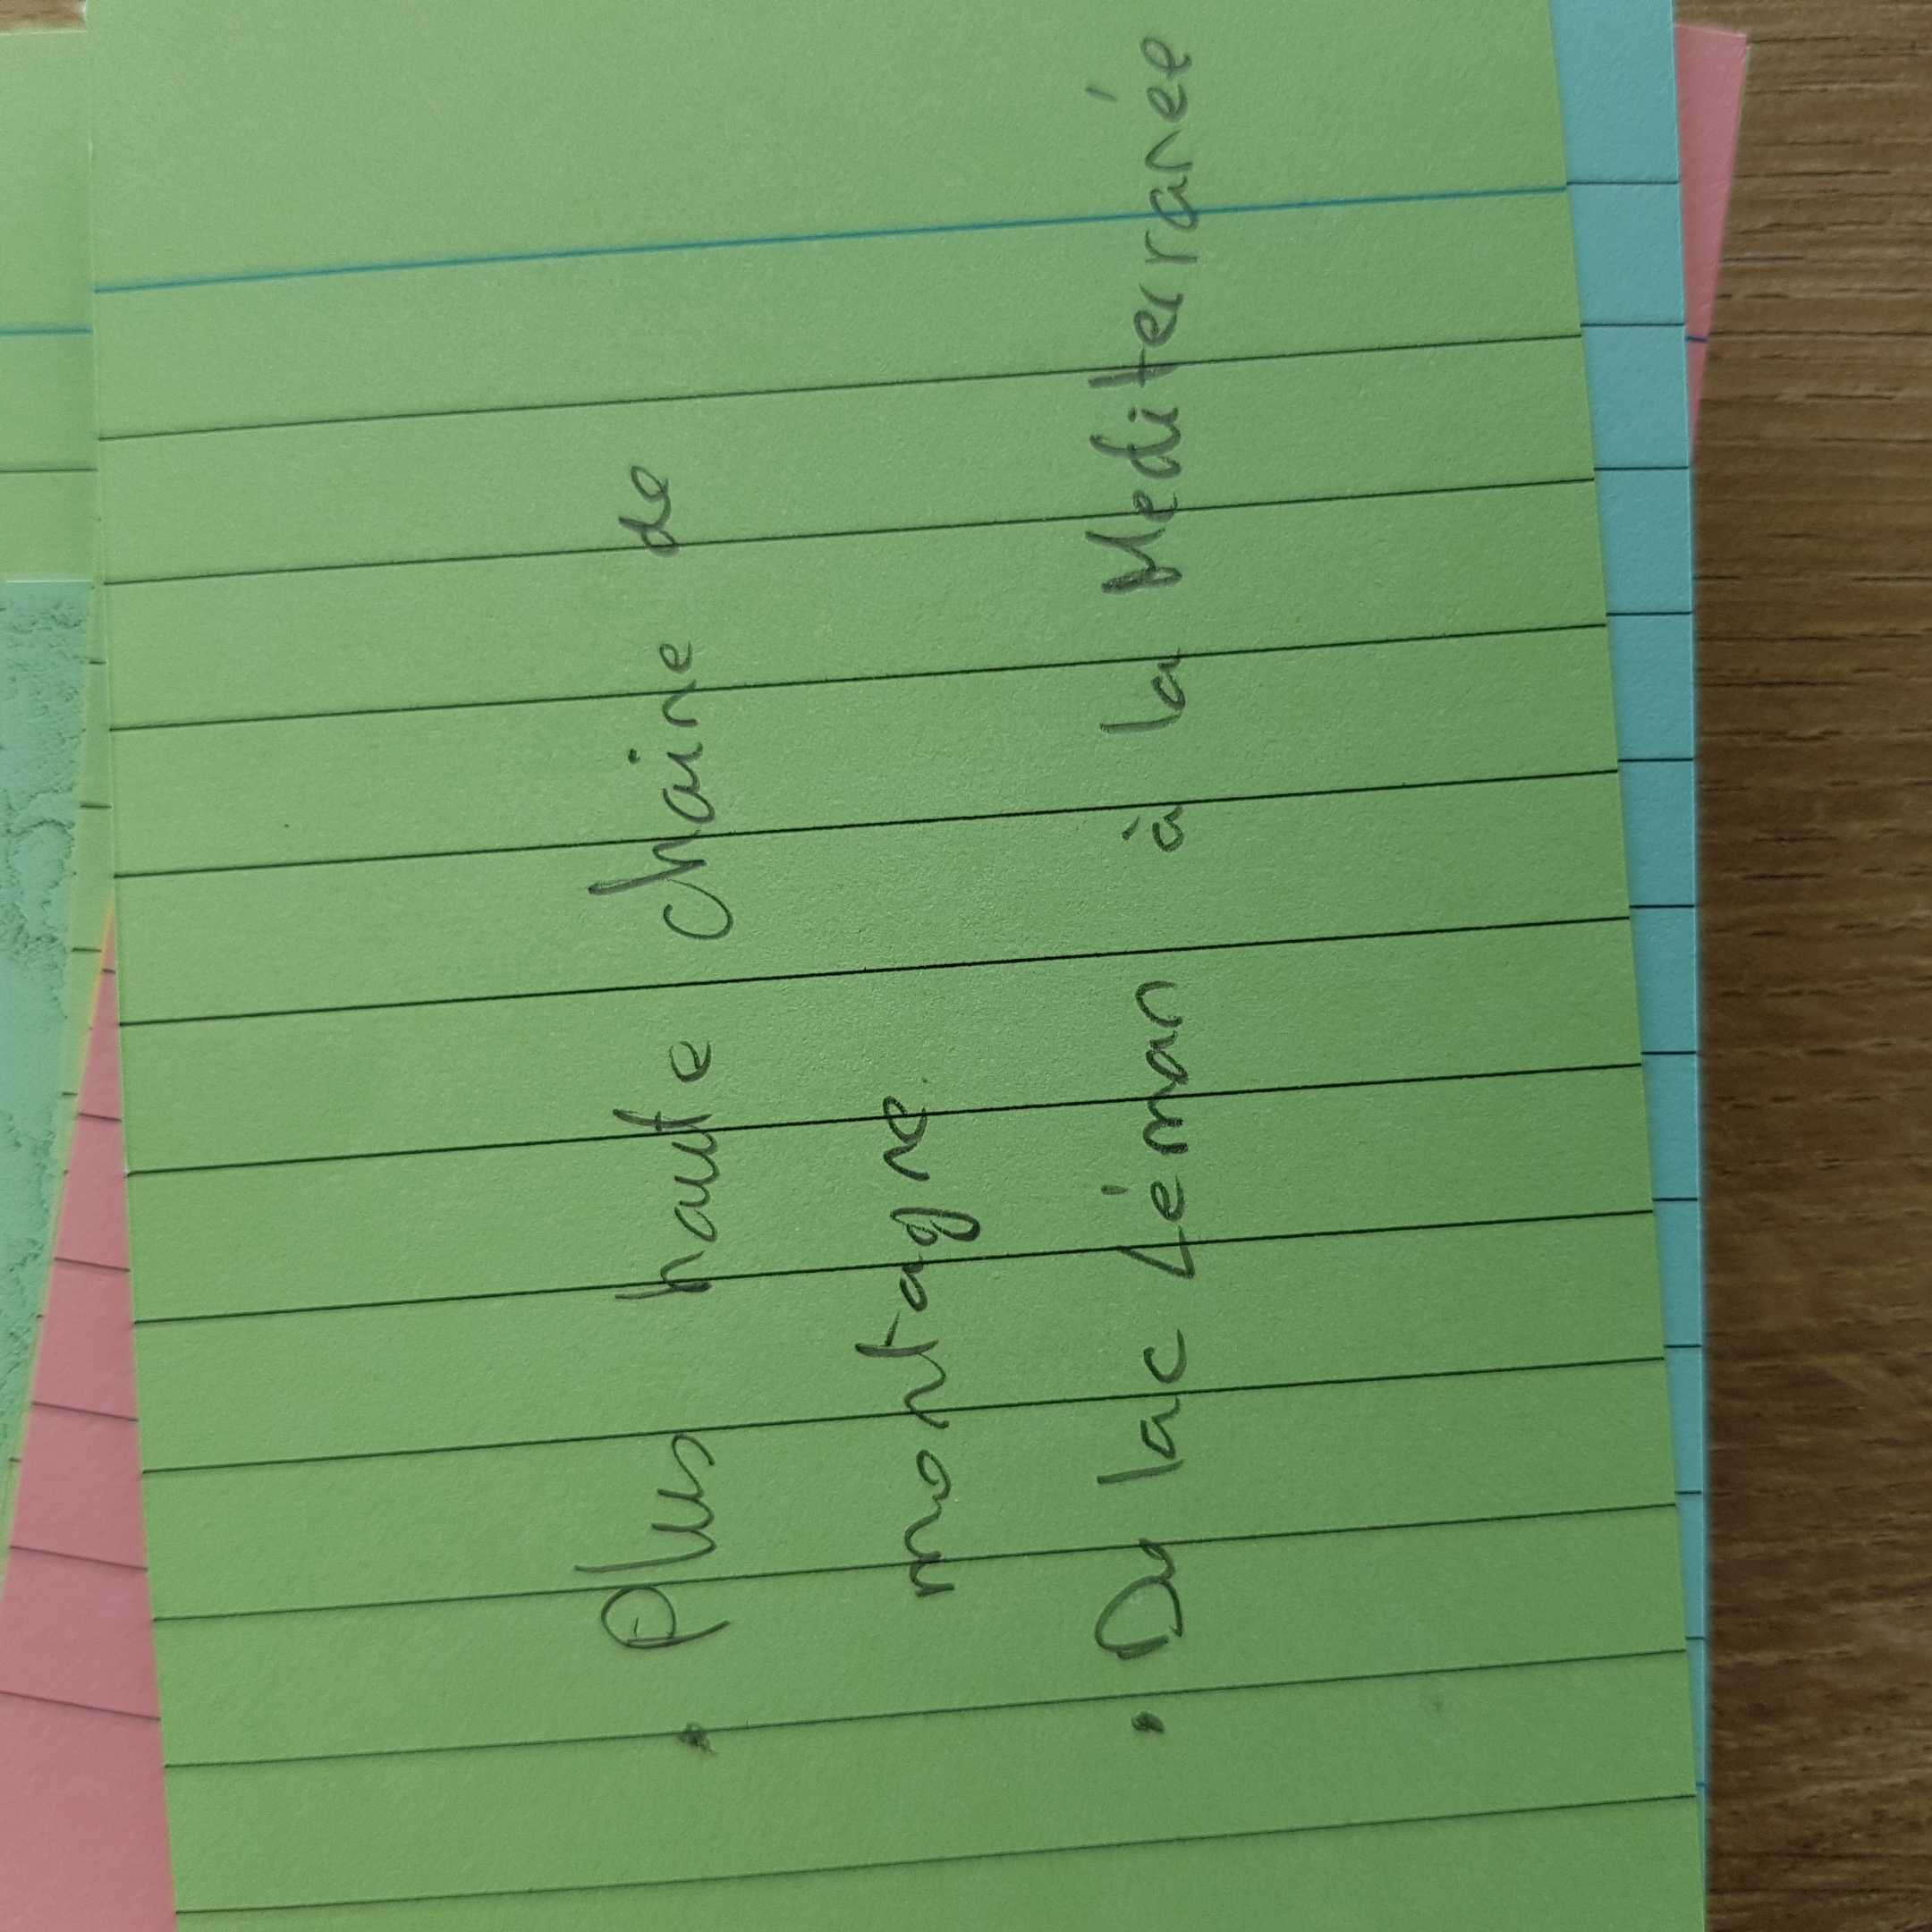 • Plus haute chaine de
montagne.
• Du lac Léman à la Mediterranée